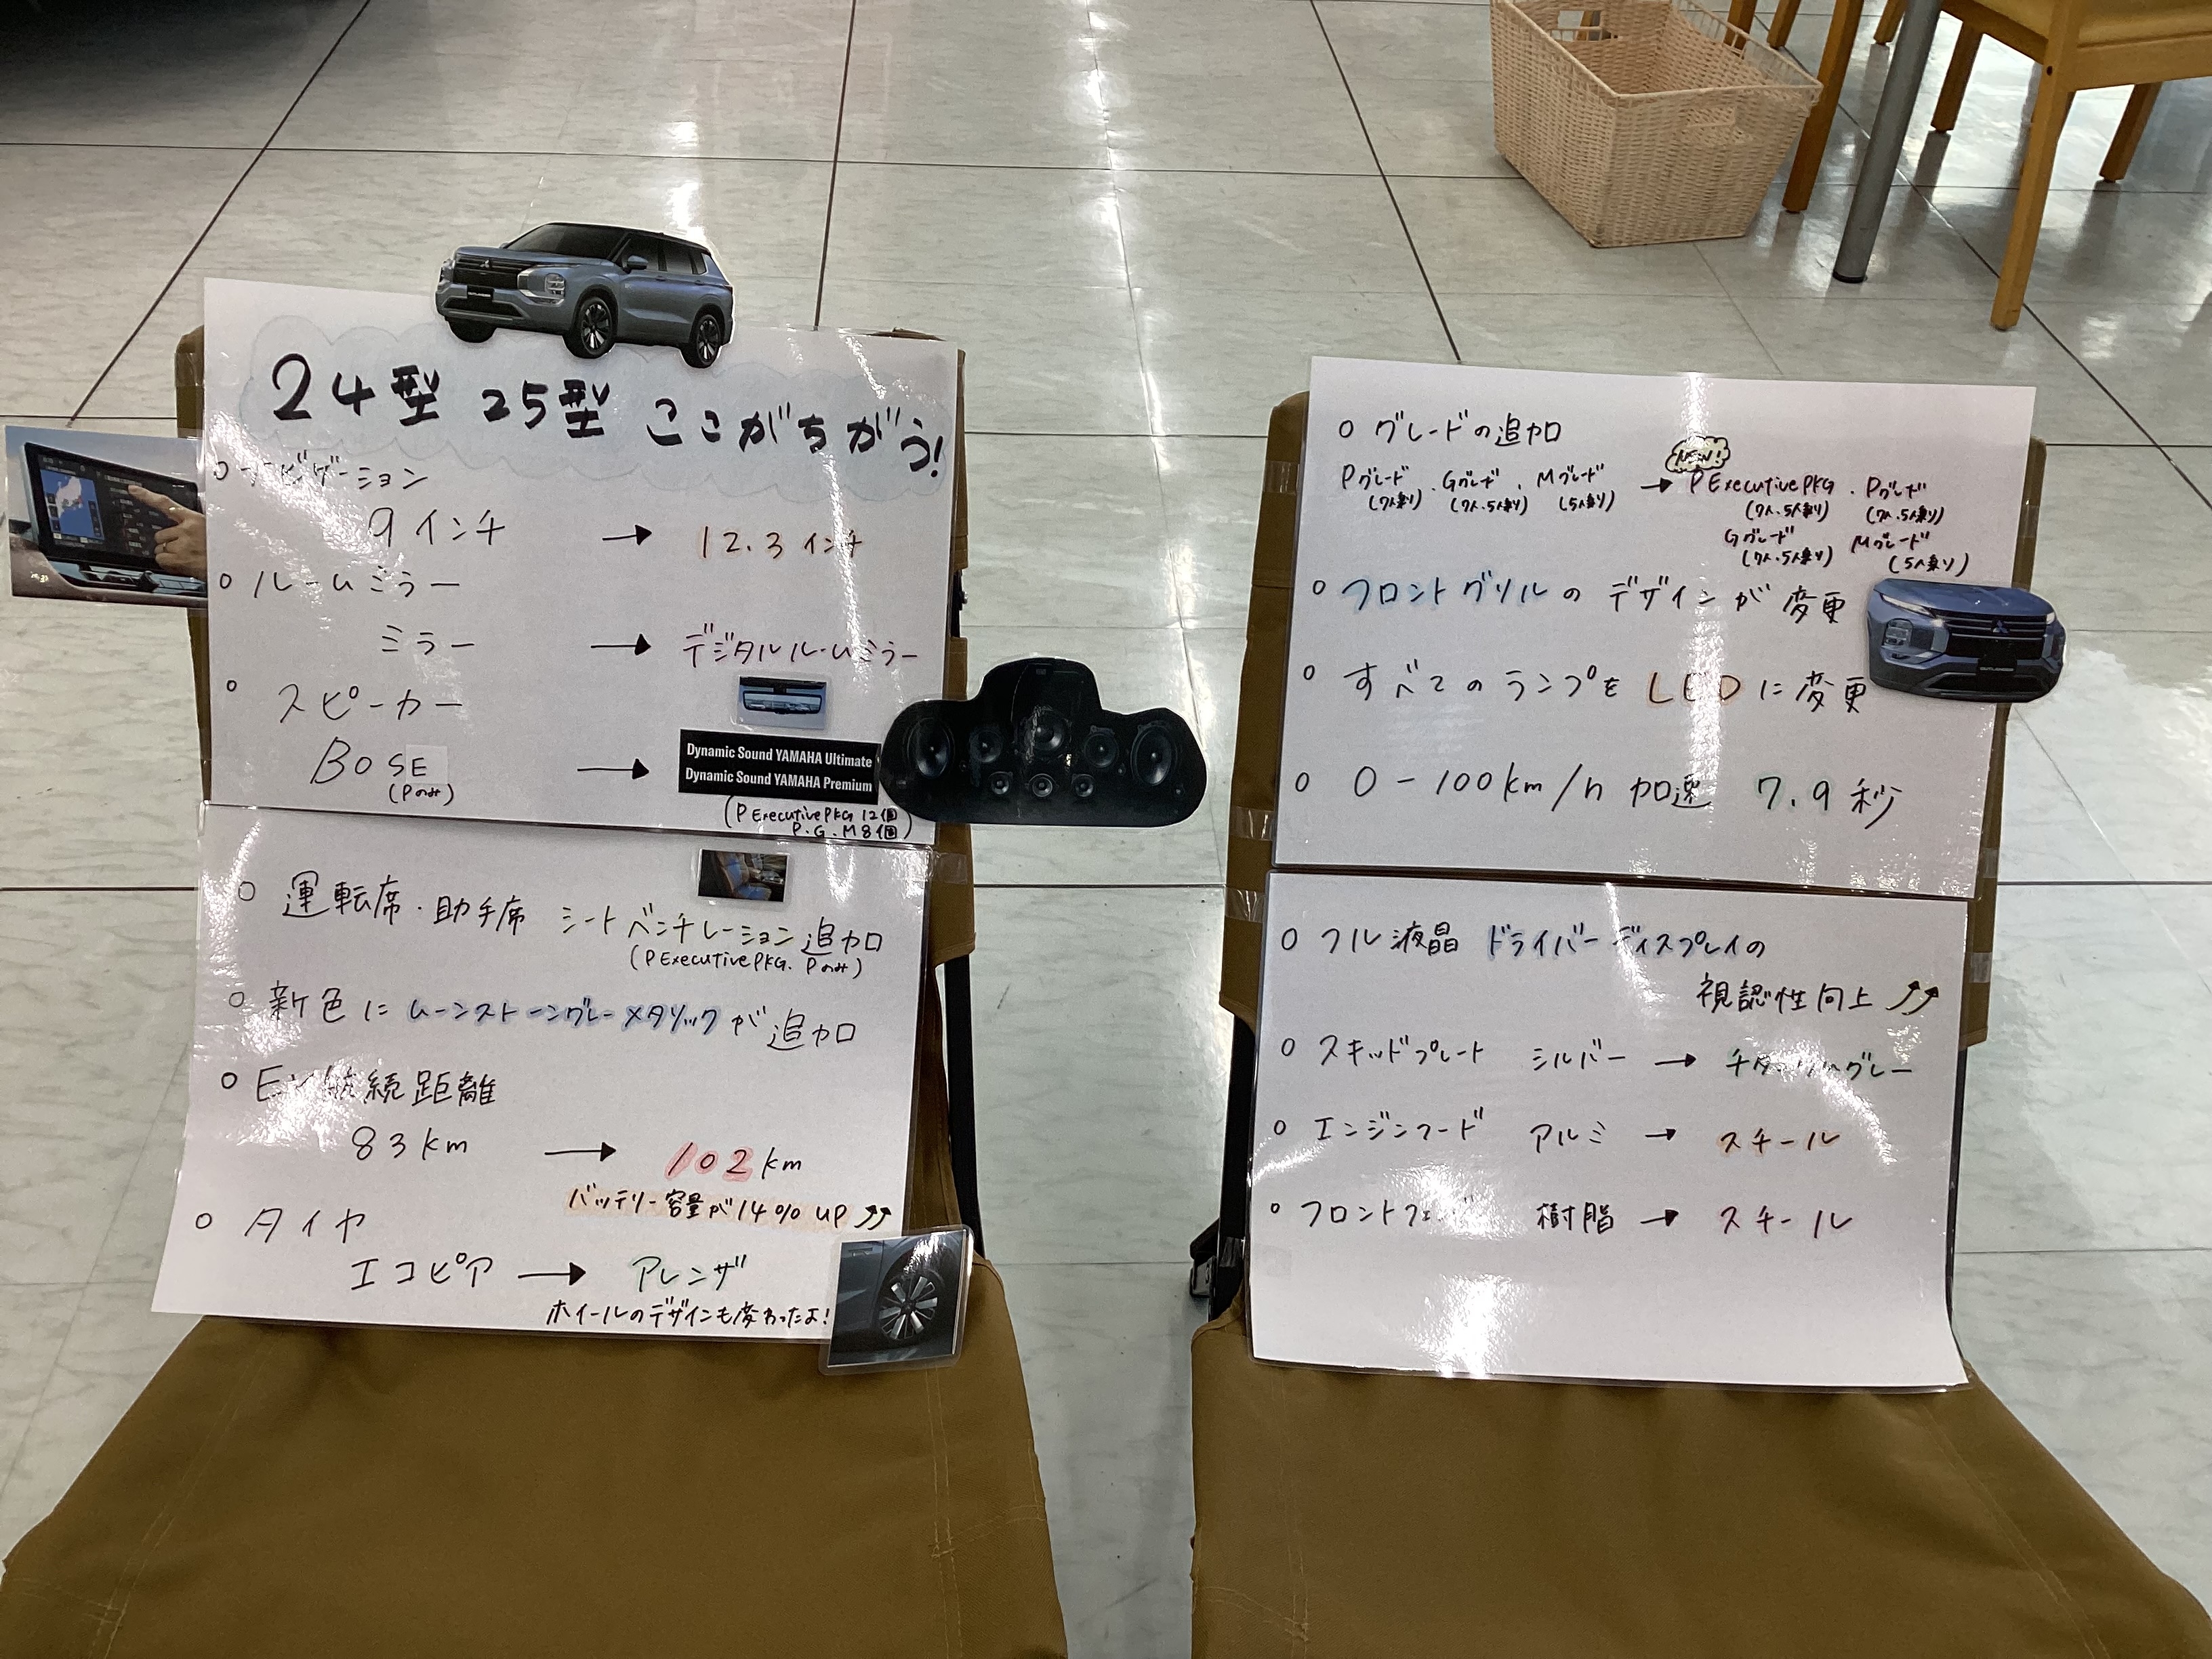 24型 25型 ここがちがう!
○ ナビゲーション
9インチ → 12.3インチ
○ ルームミラー
ミラー → デジタルルームミラー
○ スピーカー
BOSE → Dynamic Sound YAMAHA Ultimate
Dynamic Sound YAMAHA Premium
(Pのみ)
(P Executive PKG 12個
P.G.M 8個)
○ 運転席・助手席 シートベンチレーション追加
(P Executive PKG. Pのみ)
○ 新色にムーンストーングレーメタリックが追加
○ EV航続距離
83km → 102km
バッテリー容量が14%UP
○ タイヤ
エコピア → アレンザ
ホイールのデザインも変わったよ!
○ グレードの追加
NEW
Pグレード・Gグレード・Mグレード → P Executive PKG・Pグレード
(7人乗り) (7人・5人乗り) (5人乗り) (7人・5人乗り) (7人・5人乗り)
Gグレード Mグレード
(7人・5人乗り) (5人乗り)
○ フロントグリルのデザインが変更
○ すべてのランプをLEDに変更
○ 0-100km/h 加速 7.9秒
○ フル液晶 ドライバーディスプレイの
視認性向上
○ スキッドプレート シルバー → グレー
○ エンジンフード アルミ → スチール
○ フロントフェンダ 樹脂 → スチール